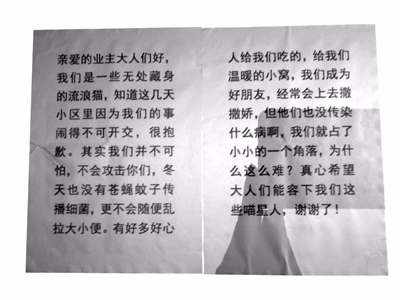 亲爱的业主大人们好，
我们是一些无处藏身
的流浪猫，知道这几天
小区里因为我们的事
闹得不可开交，很抱
歉。其实我们并不可
怕，不会攻击你们，冬
天也没有苍蝇蚊子传
播细菌，更不会随便乱
拉大小便。有好多好心
人给我们吃的，给我们
温暖的小窝，我们成为
好朋友，经常会上去撒
撒娇，但他们也没传染
什么病啊，我们就占了
小小的一个角落，为什
么这么难？真心希望
大人们能容下我们这
些喵星人，谢谢了！